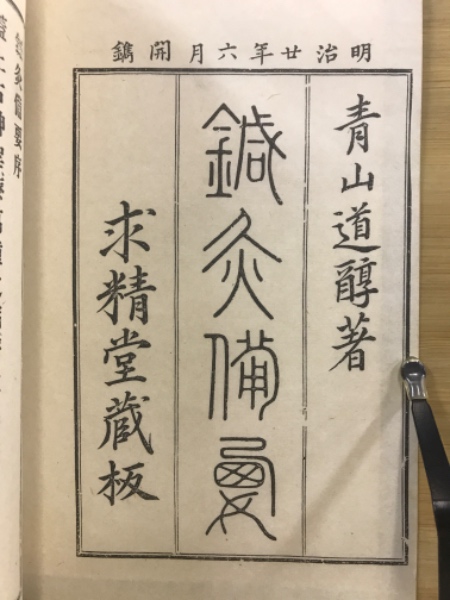 明治廿年六月開鐫
青山道醇著
鍼灸備要
求精堂蔵板
鍼灸備要序